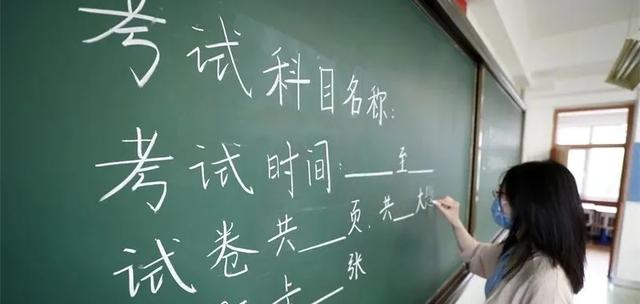 考试科目名称:
考试时间:___至___
试卷共___页,共___大
___张